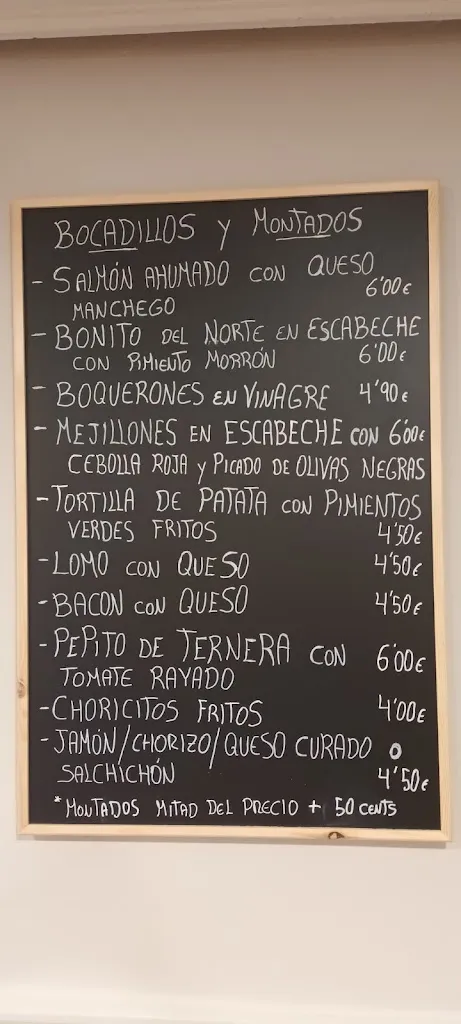 BOCADILLOS y MONTADOS
- SALMÓN AHUMADO CON QUESO
MANCHEGO 6'00€
- BONITO DEL NORTE EN ESCABECHE
CON PIMIENTO MORRÓN 6'00€
- BOQUERONES EN VINAGRE 4'90€
- MEJILLONES EN ESCABECHE CON 6'00€
CEBOLLA ROJA y PICADO DE OLIVAS NEGRAS
- TORTILLA DE PATATA CON PIMIENTOS
VERDES FRITOS 4'50€
- LOMO CON QUESO 4'50€
- BACON CON QUESO 4'50€
- PEPITO DE TERNERA CON 6'00€
TOMATE RAYADO
- CHORICITOS FRITOS 4'00€
- JAMÓN/CHORIZO/QUESO CURADO O
SALCHICHÓN 4'50€
* MONTADOS MITAD DEL PRECIO + 50 CENTS